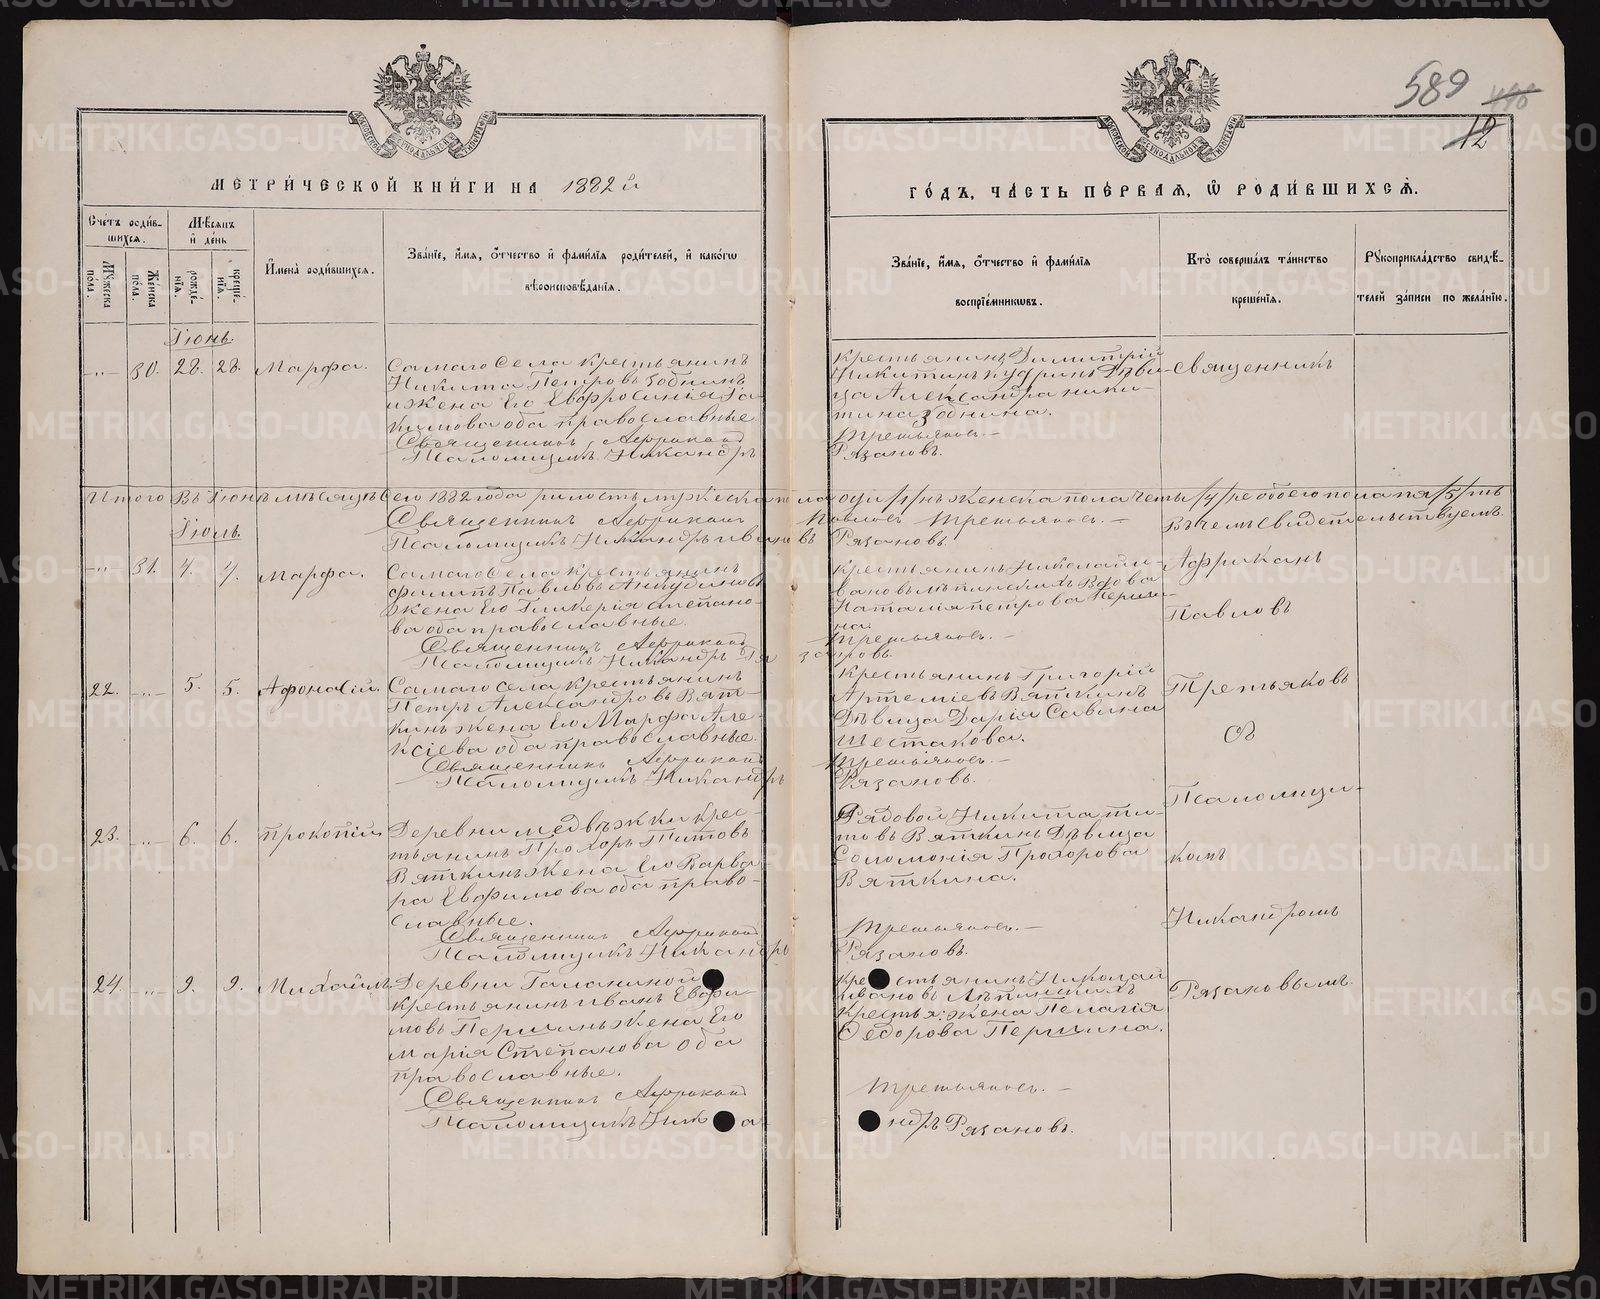 589
12
МЕТРИ́ЧЕСКОЙ КНИ́ГИ НА 1882 й
ГО́ДЪ, ЧА́СТЬ ПЕ́РВАЯ, Ѡ҆ РОДИ́ВШИХСѦ.
Сче́тъ роди́в-
шихся.
Мѣ́сяцъ
и҆ де́нь
Мꙋ́жеска по́ла.
Же́нска по́ла.
рожде́-
нїя.
креще́-
нїя.
И҆мена̀ роди́вшихся.
Зва́нїе, и҆́мя, ѻ҆́тчество и҆ фами́лїя роди́телей, и҆ како́гѡ
вѣроисповѣ́данїя.
Зва́нїе, и҆́мя, ѻ҆́тчество и҆ фами́лїя
воспрїе́мникѡвъ.
Кто̀ соверша́лъ та́инство
креще́нїя.
Рꙋкоприкла́дство свидѣ́-
телей за́писи по жела́нїю.
Іюнь.
30. 28. 28. Марфа.
Самаго Села крестьянинъ
Никита Петровъ Зобнинъ
и жена Его Евфросинія Іа-
кимова оба православные
Священникъ Африканъ
Псаломщикъ Никандръ
крестьянинъ Димитрій
Никитинъ Кудринъ Дѣви-
ца Александра Ники-
тина Зобнина.
Третьяковъ.
Рязановъ.
Священникъ
Итого Въ Іюнѣ мѣсяцѣ Сего 1882 года
мужеска пола оди/1/нъ женска пола четы/4/ре обоего пола пя/5/ть
Священникъ Африканъ Павловъ Третьяковъ.
Псаломщикъ Никандръ Ивановъ Рязановъ.
Въ чемъ Свидетельствуемъ.
Іюль.
31. 4. 4. Марфа.
Самаго Села крестьянинъ
Филипъ Павловъ
жена Его Гликерія Степано-
ва оба православные.
Священникъ Африканъ
Псаломщикъ Никандръ Ря
крестьянинъ Николай И-
вановъ Лѣпинскихъ Вдова
Наталия Петрова Перши-
на.
Третьяковъ.
зановъ.
Африканъ
Павловъ
22. 5. 5. Афонасій.
Самаго Села крестьянинъ
Петръ Александровъ Вят-
кинъ жена Его Марфа Але-
ксіева оба православные.
Священникъ Африканъ
Псаломщикъ Никандръ
крестьянинъ Григорій
Артеміевъ Вяткинъ
Дѣвица Дарія Савина
Шестакова.
Третьяковъ.
Рязановъ.
Третьяковъ
Съ
Псаломщи-
23. 6. 6. Прокопій
Деревни Медвѣжки крес-
тьянинъ Прохоръ Титовъ
Вяткинъ жена Его Варва
ра Евфимова оба право-
славные.
Священникъ Африканъ
Псаломщикъ Никандръ
Рядовой Никита Ти-
товъ Вяткинъ Дѣвица
Соломонія Прохорова
Вяткина.
Третьяковъ.
Рязановъ.
комъ
Никандромъ
24. 9. 9. Михаилъ
Деревни Галаниной
крестьянинъ Иванъ Евфи-
мовъ Першинъ жена Его
Марія Степанова оба
православные.
Священникъ Африканъ
Псаломщикъ Ника
крестьянинъ Николай
Ивановъ Лѣпинскихъ
крестья: жена Пелагія
Федорова Першина.
Третьяковъ.
ндръ Рязановъ.
Рязановымъ.
METRIKI.GASO-URAL.RU